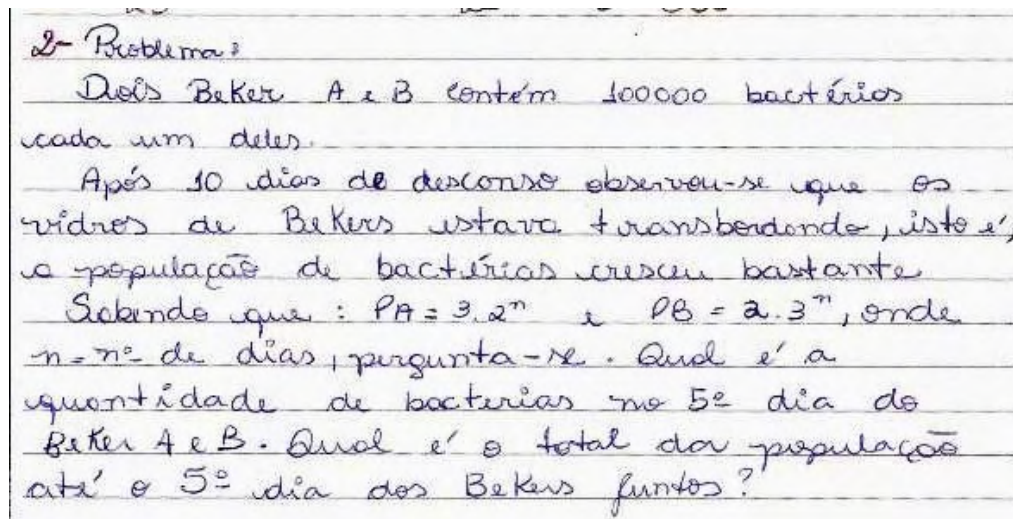 2- Problema:
Dois Beker A e B contém 100000 bactérias
cada um deles.
Após 10 dias de desconso observou-se que os
vidros de Bekers estava transbordando, isto é,
a população de bactérias cresceu bastante
Sabendo que : PA = 3.2ⁿ e PB = 2.3ⁿ, onde
n = nº de dias, pergunta-se. Qual é a
quantidade de bacterias no 5º dia do
Beker A e B. Qual é o total da população
até o 5º dia dos Bekers juntos?